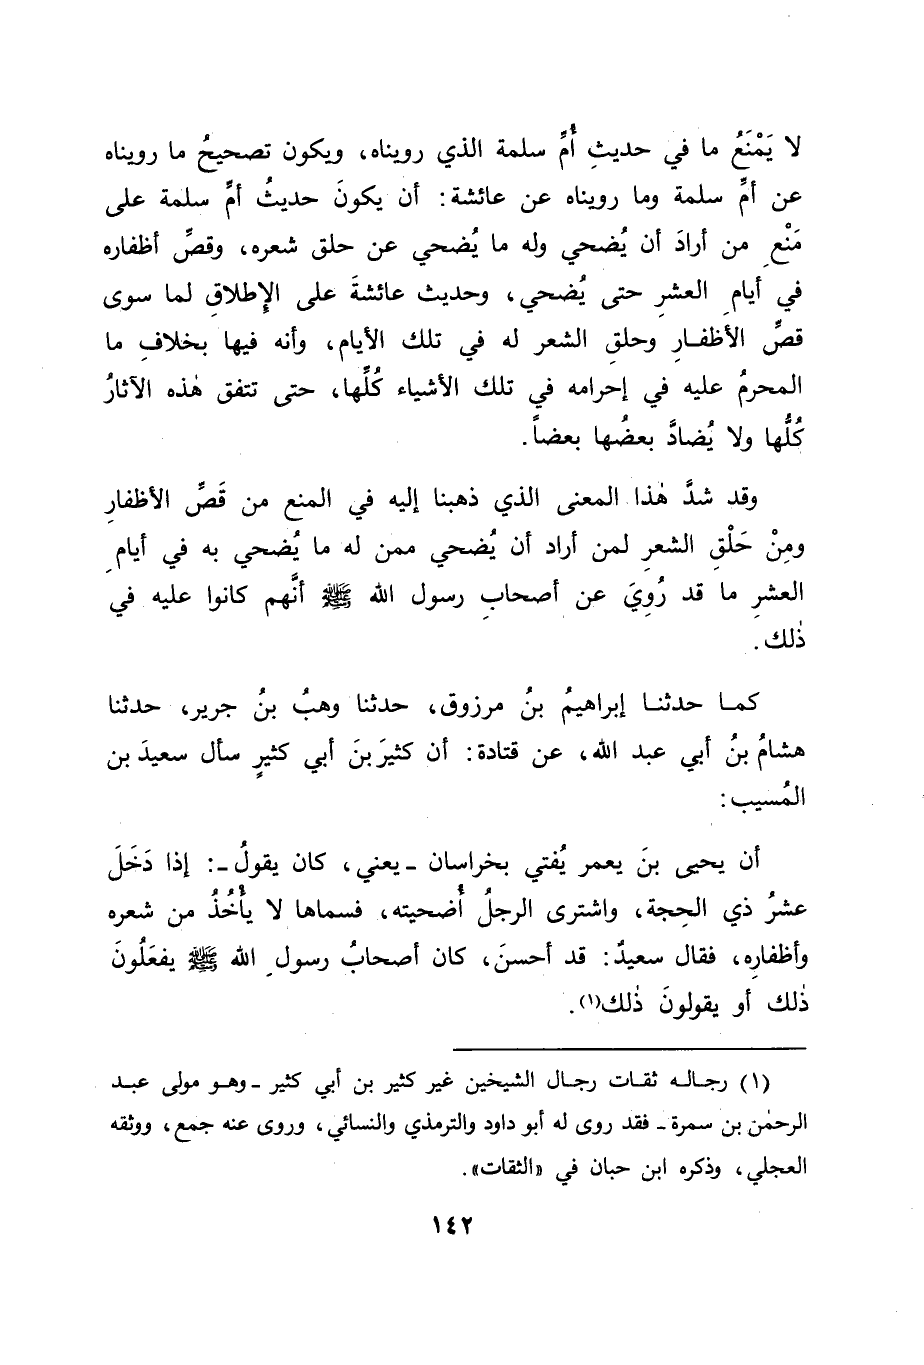 لا يَمْنَعُ ما في حديثِ أُمِّ سلمة الذي رويناه، ويكون تصحيحُ ما رويناه
عن أمِّ سلمة وما رويناه عن عائشة: أن يكونَ حديثُ أمِّ سلمة على
مَنْعِ من أرادَ أن يُضحي وله ما يُضحي عن حلق شعره، وقصِّ أظفاره
في أيامِ العشرِ حتى يُضحي، وحديث عائشةَ على الإِطلاقِ لما سوى
قصِّ الأظفـارِ وحلقِ الشعر له في تلك الأيام، وأنه فيها بخلافِ ما
المحرمُ عليه في إحرامه في تلك الأشياء كُلِّها، حتى تتفق هٰذه الآثارُ
كُلُّها ولا يُضادَّ بعضُها بعضاً.
وقد شدَّ هٰذا المعنى الذي ذهبنا إليه في المنع من قَصِّ الأظفارِ
ومِنْ حَلْقِ الشعرِ لمن أراد أن يُضحي ممن له ما يُضحي به في أيامِ
العشرِ ما قد رُوِيَ عن أصحابِ رسول الله ﷺ أنَّهم كانوا عليه في
ذٰلك.
كمـا حدثنـا إبراهيمُ بنُ مرزوق، حدثنا وهبُ بنُ جرير، حدثنا
هشامُ بنُ أبي عبد الله، عن قتادة: أن كثيرَ بنَ أبي كثيرٍ سأل سعيدَ بن
المُسيب:
أن يحيى بنَ يعمر يُفتي بخراسان -يعني، كان يقولُ-: إذا دَخَلَ
عشرُ ذي الحجة، واشترى الرجلُ أُضحيته، فسماها لا يأْخُذُ من شعره
وأظفارِه، فقال سعيدٌ: قد أحسنَ، كان أصحابُ رسولِ الله ﷺ يفعَلُونَ
ذٰلك أو يقولونَ ذٰلك(١).
(١) رجـالـه ثقـات رجـال الشيخين غير كثير بن أبي كثير -وهـو مولى عبـد
الرحمٰن بن سمرة- فقد روى له أبو داود والترمذي والنسائي، وروى عنه جمع، ووثقه
العجلي، وذكره ابن حبان في «الثقات».
١٤٢